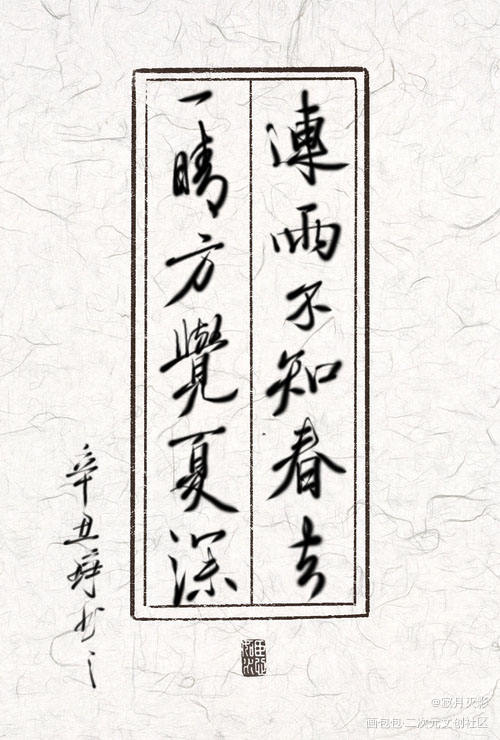 連雨不知春去
一晴方覺夏深
辛丑
@寂月灭影
画包包·二次元文创社区